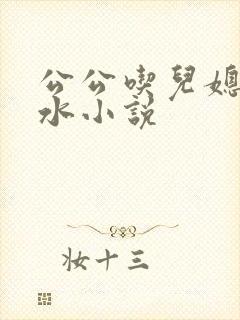 公公喫兒媳
水小説
妆十三